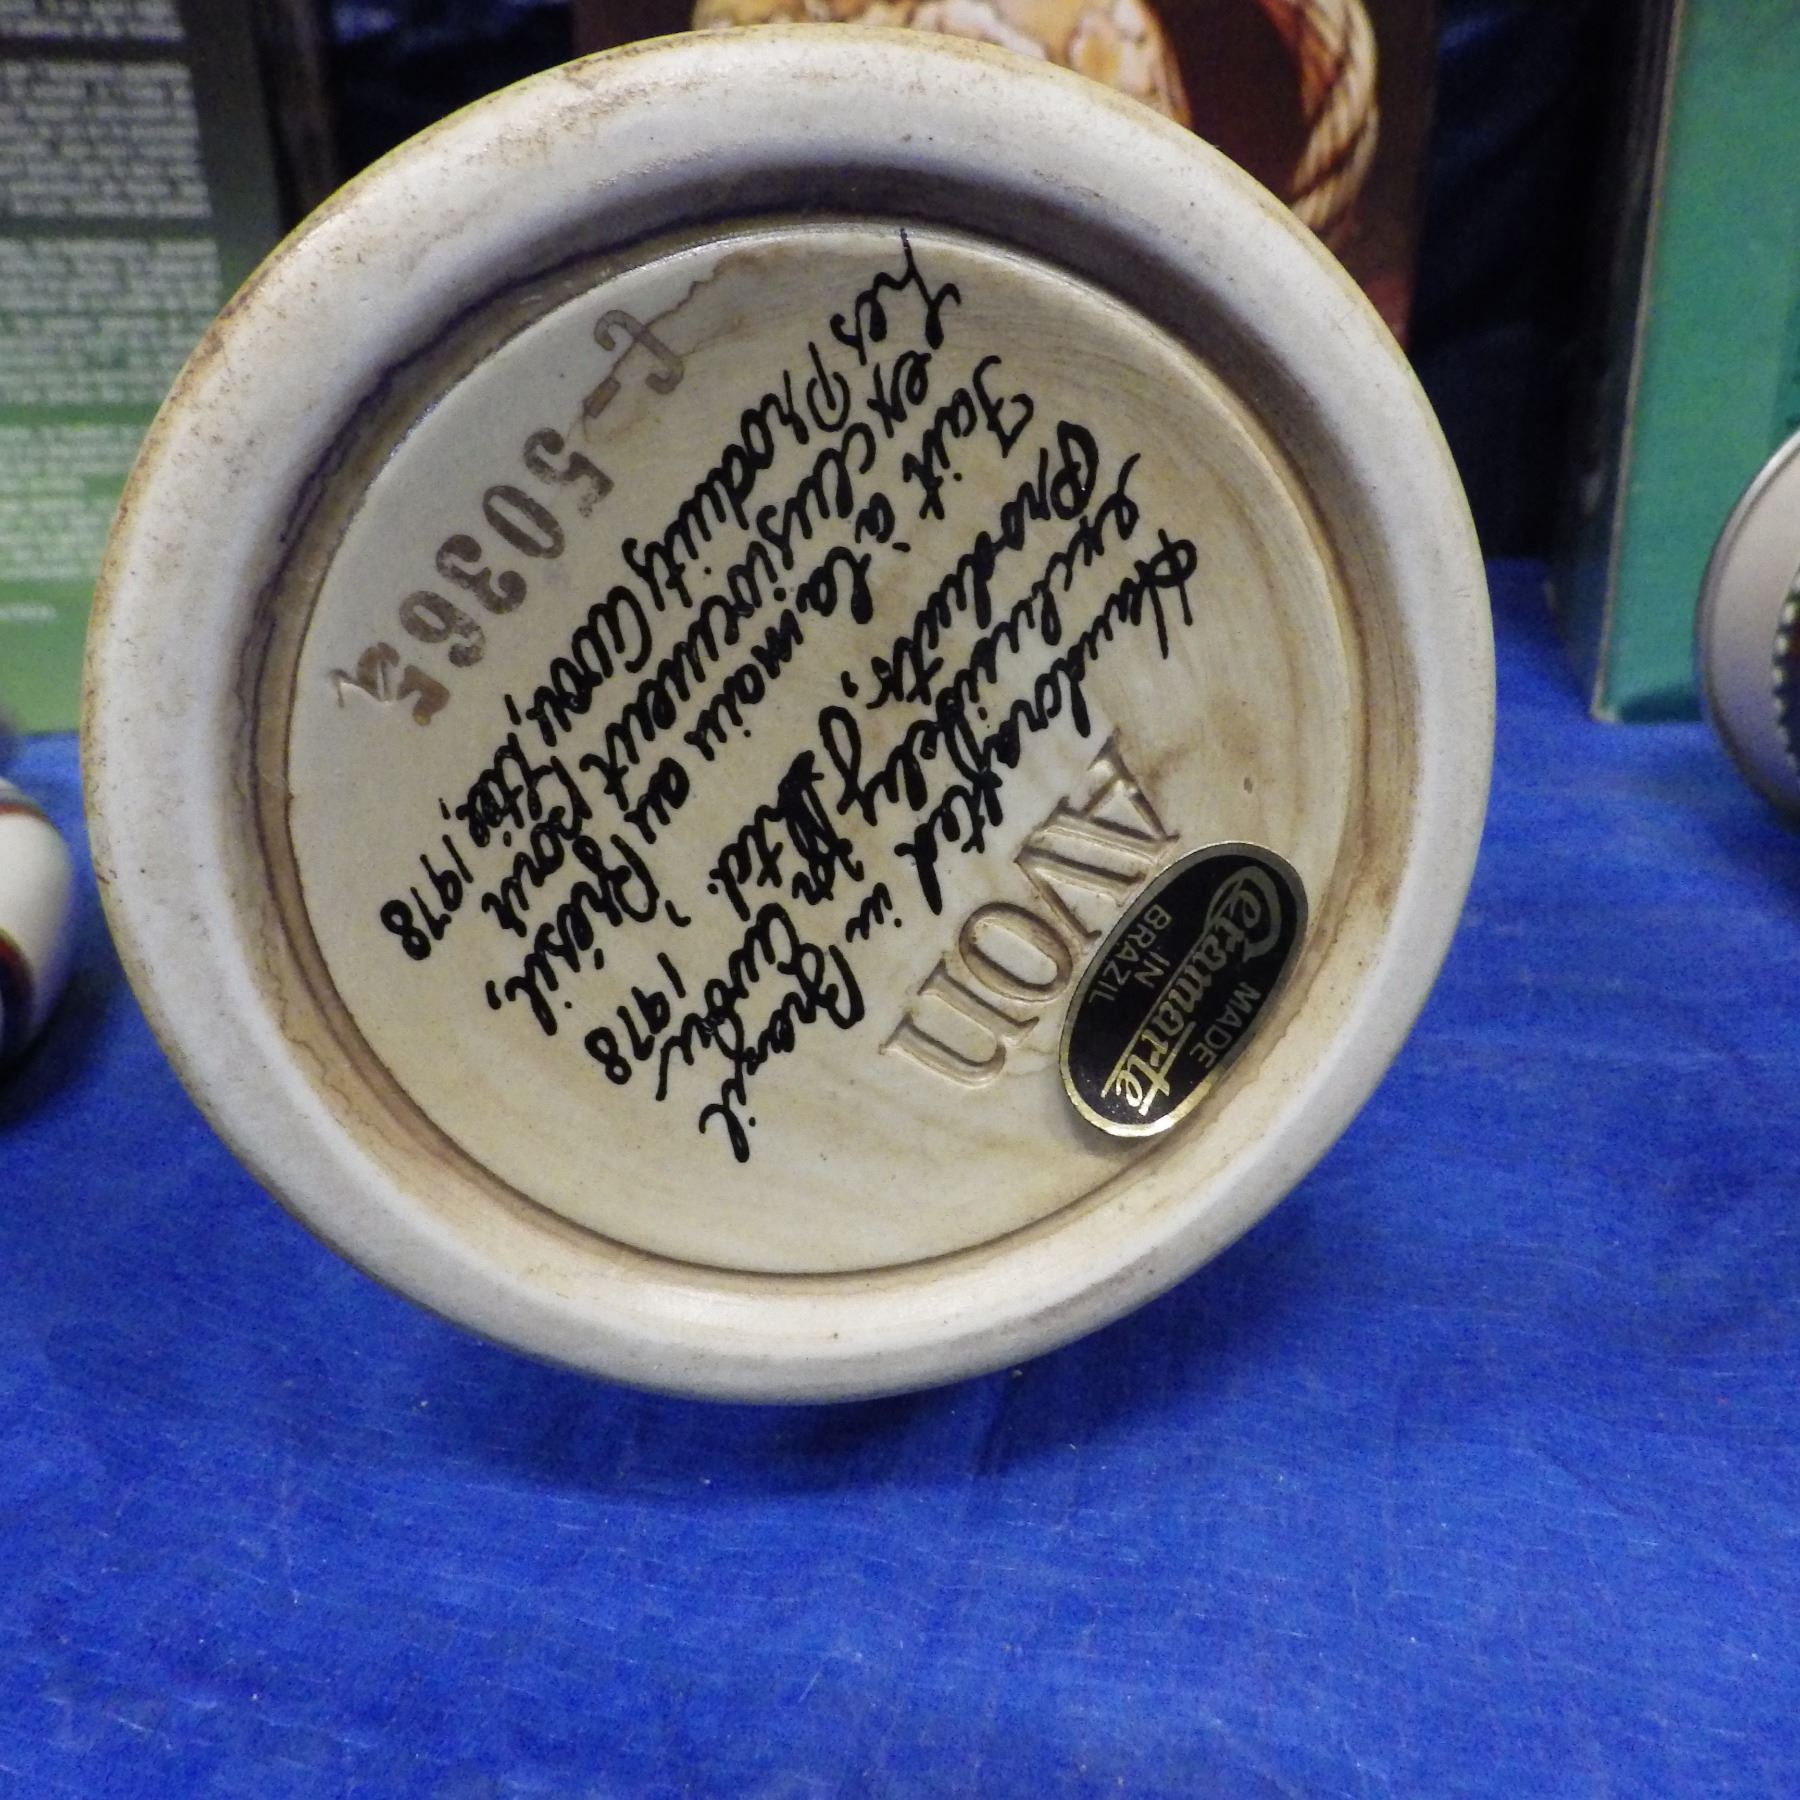 Avon
Handcrafted in Brazil
exclusively for Avon
Products, Ltd. 1978
Fait à la main au Brésil,
exclusivement pour
Les Produits Avon, Ltée, 1978
C-503651
MADE
Ceramarte
IN
BRAZIL